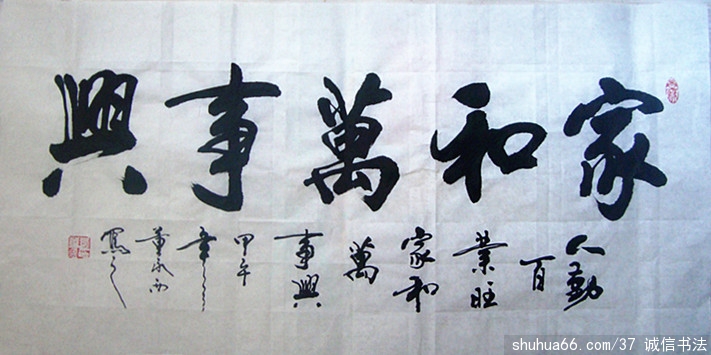 家和萬事興
人勤
百
業旺
家和
萬
事興
甲午
年
董
寫
shuhua66.com/37 诚信书法